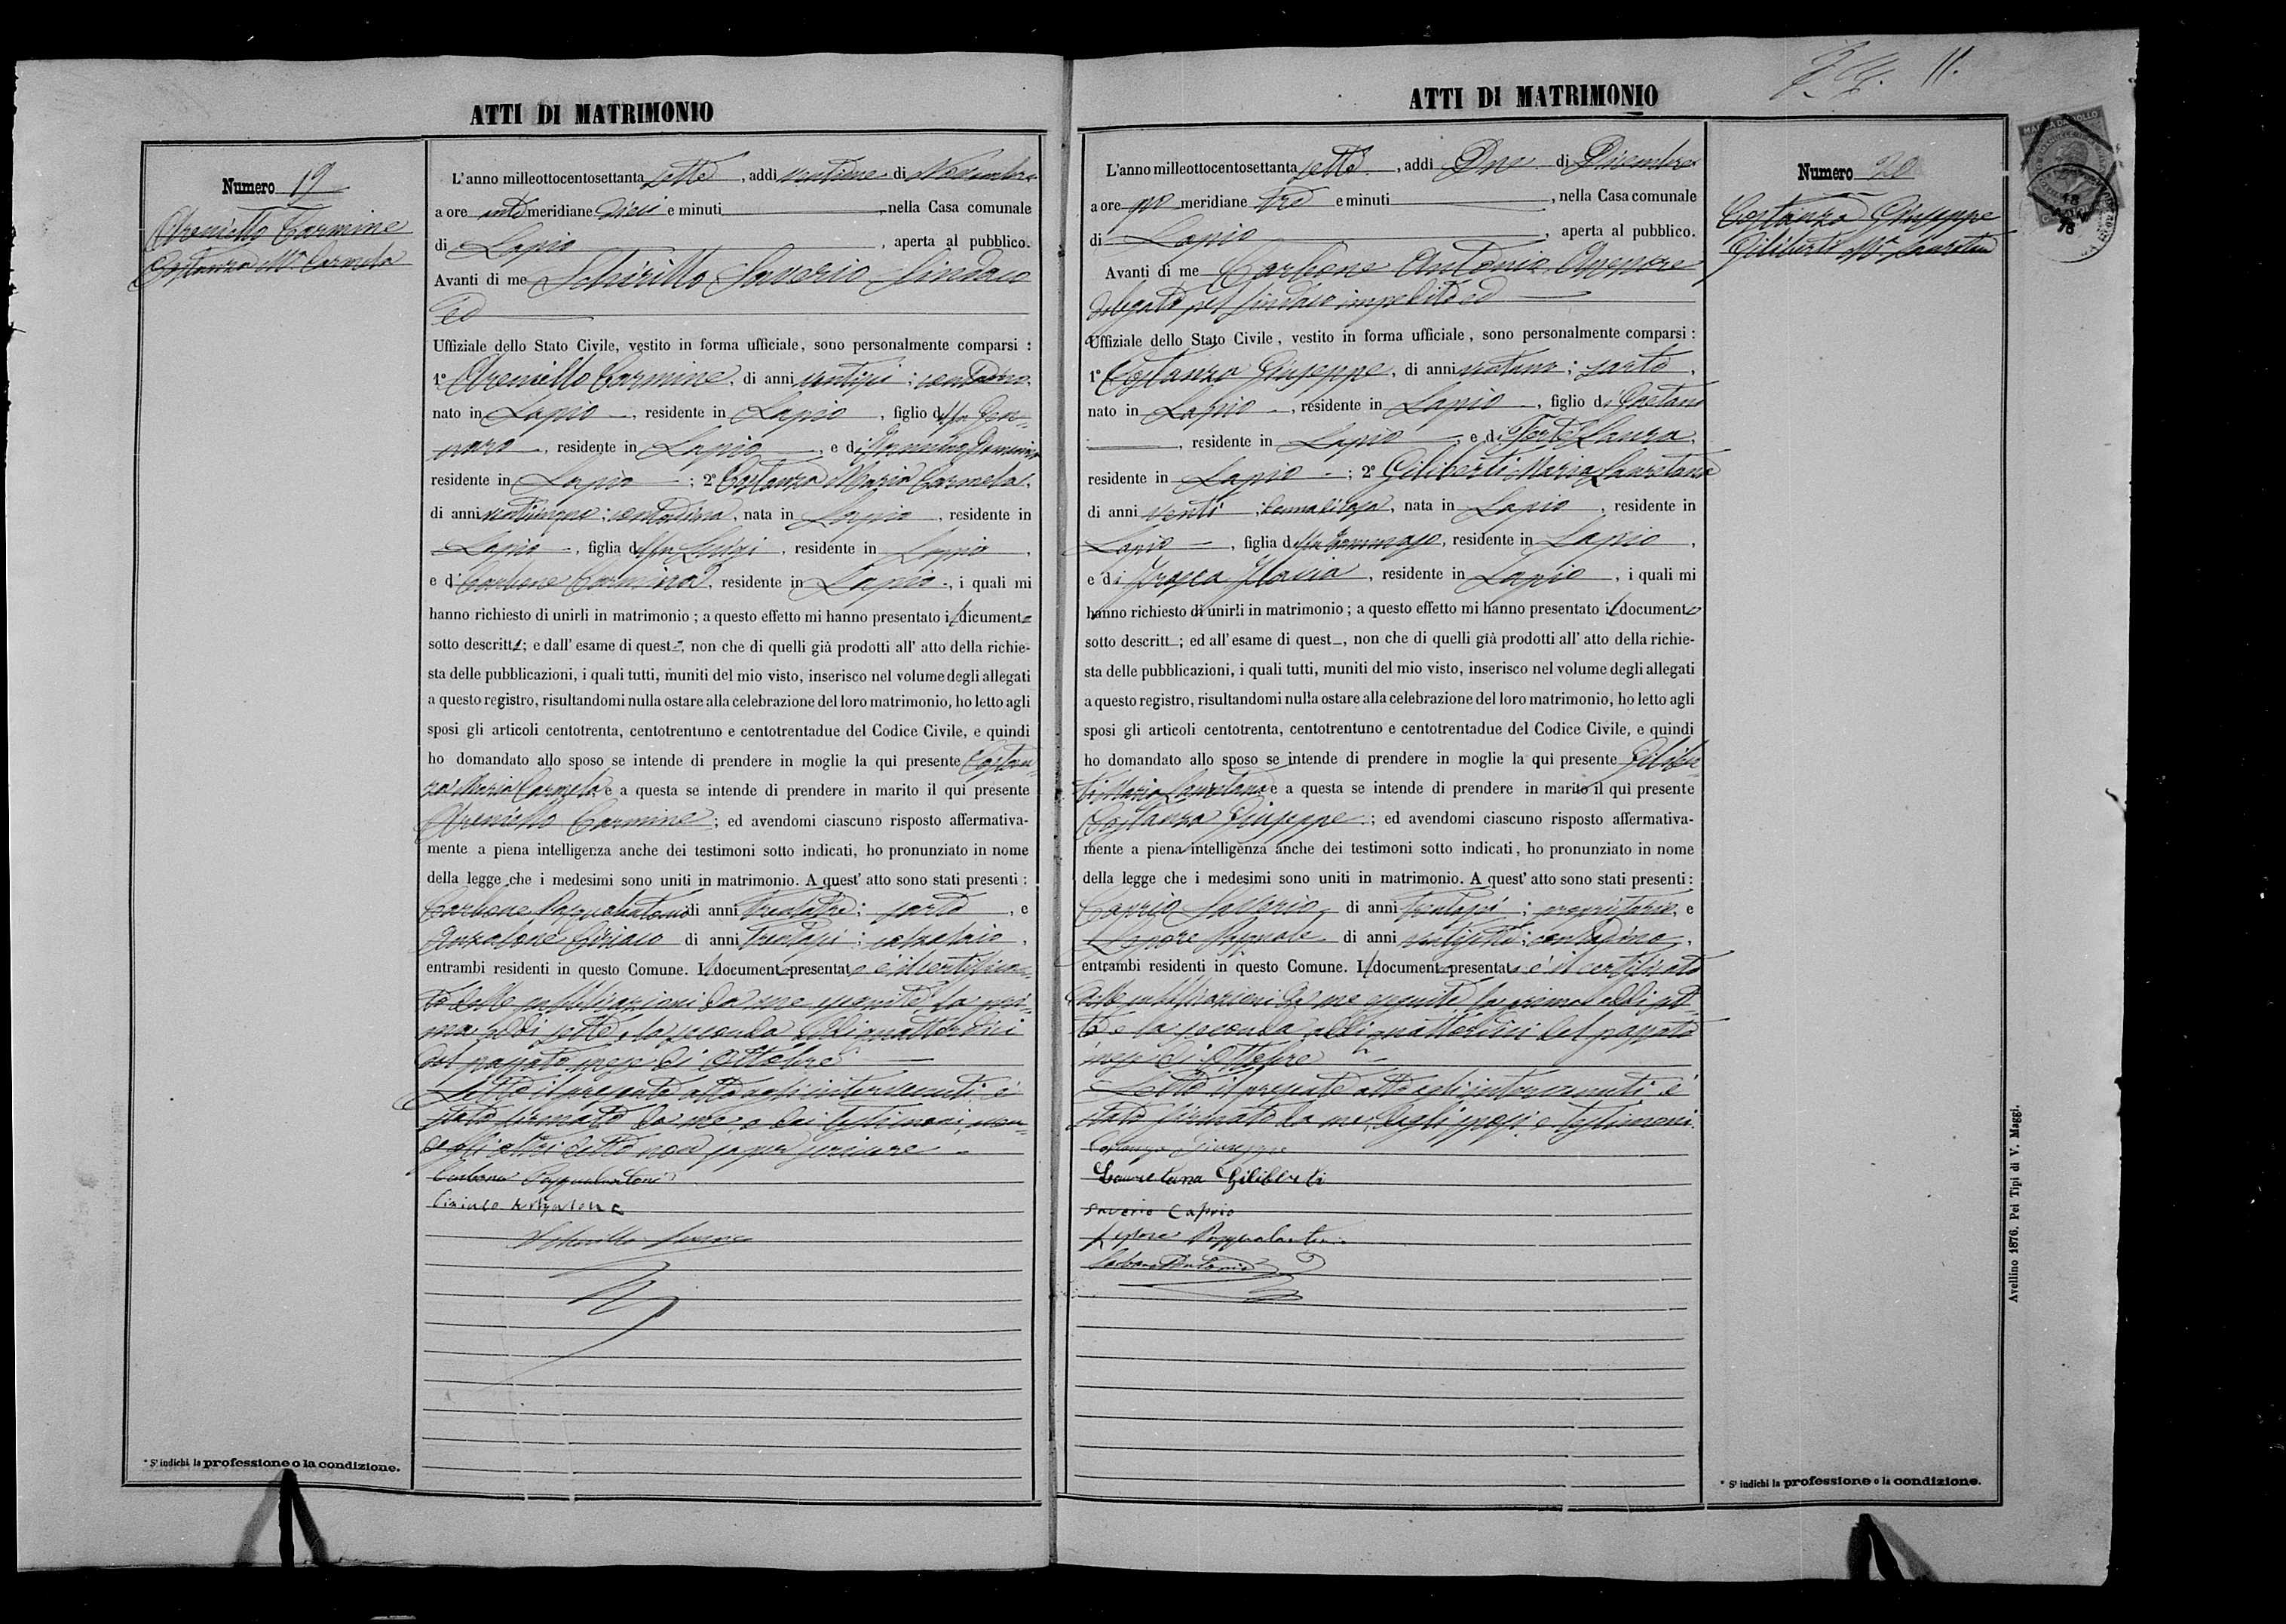 ATTI DI MATRIMONIO
Numero 19
Areniello Carmine
Costanza Mª Carmela
L'anno milleottocentosettanta sette, addì di Novembre
a ore anti meridiane dieci e minuti, nella Casa comunale
di Lapio, aperta al pubblico.
Avanti di me Schirillo Saverio Sindaco
ed
Uffiziale dello Stato Civile, vestito in forma ufficiale, sono personalmente comparsi:
1° Areniello Carmine, di anni ventisei; contadino,
nato in Lapio, residente in Lapio, figlio del fu Gen-
naro, residente in Lapio, e di
residente in Lapio; 2° Costanza Maria Carmela,
di anni venticinque; contadina, nata in Lapio, residente in
Lapio, figlia del fu Luigi, residente in Lapio,
e di Carbone Carmina, residente in Lapio, i quali mi
hanno richiesto di unirli in matrimonio; a questo effetto mi hanno presentato il dicumento
sotto descritto; e dall'esame di questo, non che di quelli già prodotti all'atto della richie-
sta delle pubblicazioni, i quali tutti, muniti del mio visto, inserisco nel volume degli allegati
a questo registro, risultandomi nulla ostare alla celebrazione del loro matrimonio, ho letto agli
sposi gli articoli centotrenta, centotrentuno e centotrentadue del Codice Civile, e quindi
ho domandato allo sposo se intende di prendere in moglie la qui presente Costan-
za Maria Carmela e a questa se intende di prendere in marito il qui presente
Areniello Carmine; ed avendomi ciascuno risposto affermativa-
mente a piena intelligenza anche dei testimoni sotto indicati, ho pronunziato in nome
della legge che i medesimi sono uniti in matrimonio. A quest'atto sono stati presenti:
Carbone Pasqualantonio di anni trentatre; sarto, e
Anzalone Ciriaco di anni trentasei; calzolaio,
entrambi residenti in questo Comune. Il documento presentato è il certifica-
to delle pubblicazioni da me eseguite, la pri-
ma addì sette, la seconda addì quattordici
del passato mese di Ottobre
Letto il presente atto agli intervenuti è
stato firmato da me, e dai testimoni, aven-
do gli altri detto non saper scrivere.
Carbone Pasqualantonio
Ciriaco Anzalone
Schirillo Saverio
* S'indichi la professione o la condizione.
11.
ATTI DI MATRIMONIO
MARCA DA BOLLO
Numero 20
Costanza Giuseppe
Giliberti Mª Lauretana
L'anno milleottocentosettanta sette, addì Due di Dicembre
a ore po meridiane tre e minuti, nella Casa comunale
di Lapio, aperta al pubblico.
Avanti di me Carbone Antonio Assessore
delegato, pel Sindaco impedito ed
Uffiziale dello Stato Civile, vestito in forma ufficiale, sono personalmente comparsi:
1° Costanza Giuseppe, di anni ventuno; sarto,
nato in Lapio, residente in Lapio, figlio di Gaetano
, residente in Lapio, e di Forte Laura,
residente in Lapio; 2° Giliberti Maria Lauretana
di anni venti; donna di casa, nata in Lapio, residente in
Lapio, figlia del fu Tommaso, residente in Lapio,
e di Maria, residente in Lapio, i quali mi
hanno richiesto di unirli in matrimonio; a questo effetto mi hanno presentato il documento
sotto descritt; ed all'esame di quest, non che di quelli già prodotti all'atto della richie-
sta delle pubblicazioni, i quali tutti, muniti del mio visto, inserisco nel volume degli allegati
a questo registro, risultandomi nulla ostare alla celebrazione del loro matrimonio, ho letto agli
sposi gli articoli centotrenta, centotrentuno e centotrentadue del Codice Civile, e quindi
ho domandato allo sposo se intende di prendere in moglie la qui presente Giliber-
ti Maria Lauretana e a questa se intende di prendere in marito il qui presente
Costanza Giuseppe; ed avendomi ciascuno risposto affermativa-
mente a piena intelligenza anche dei testimoni sotto indicati, ho pronunziato in nome
della legge che i medesimi sono uniti in matrimonio. A quest'atto sono stati presenti:
Caprio Saverio, di anni trentasei; proprietario, e
Lepore Pasquale di anni ventisette; contadino,
entrambi residenti in questo Comune. Il documento presentato è il certificato
delle pubblicazioni da me eseguite, la prima addì set-
te e la seconda addì quattordici del passato
mese di Ottobre
Letto il presente atto agli intervenuti è
stato firmato da me, dagli sposi e testimoni.
Costanza Giuseppe
Lauretana Giliberti
Saverio Caprio
Lepore Pasqualantonio
Carbone Antonio
* S'indichi la professione o la condizione.
Avellino 1876. Pei Tipi di V. Maggi.